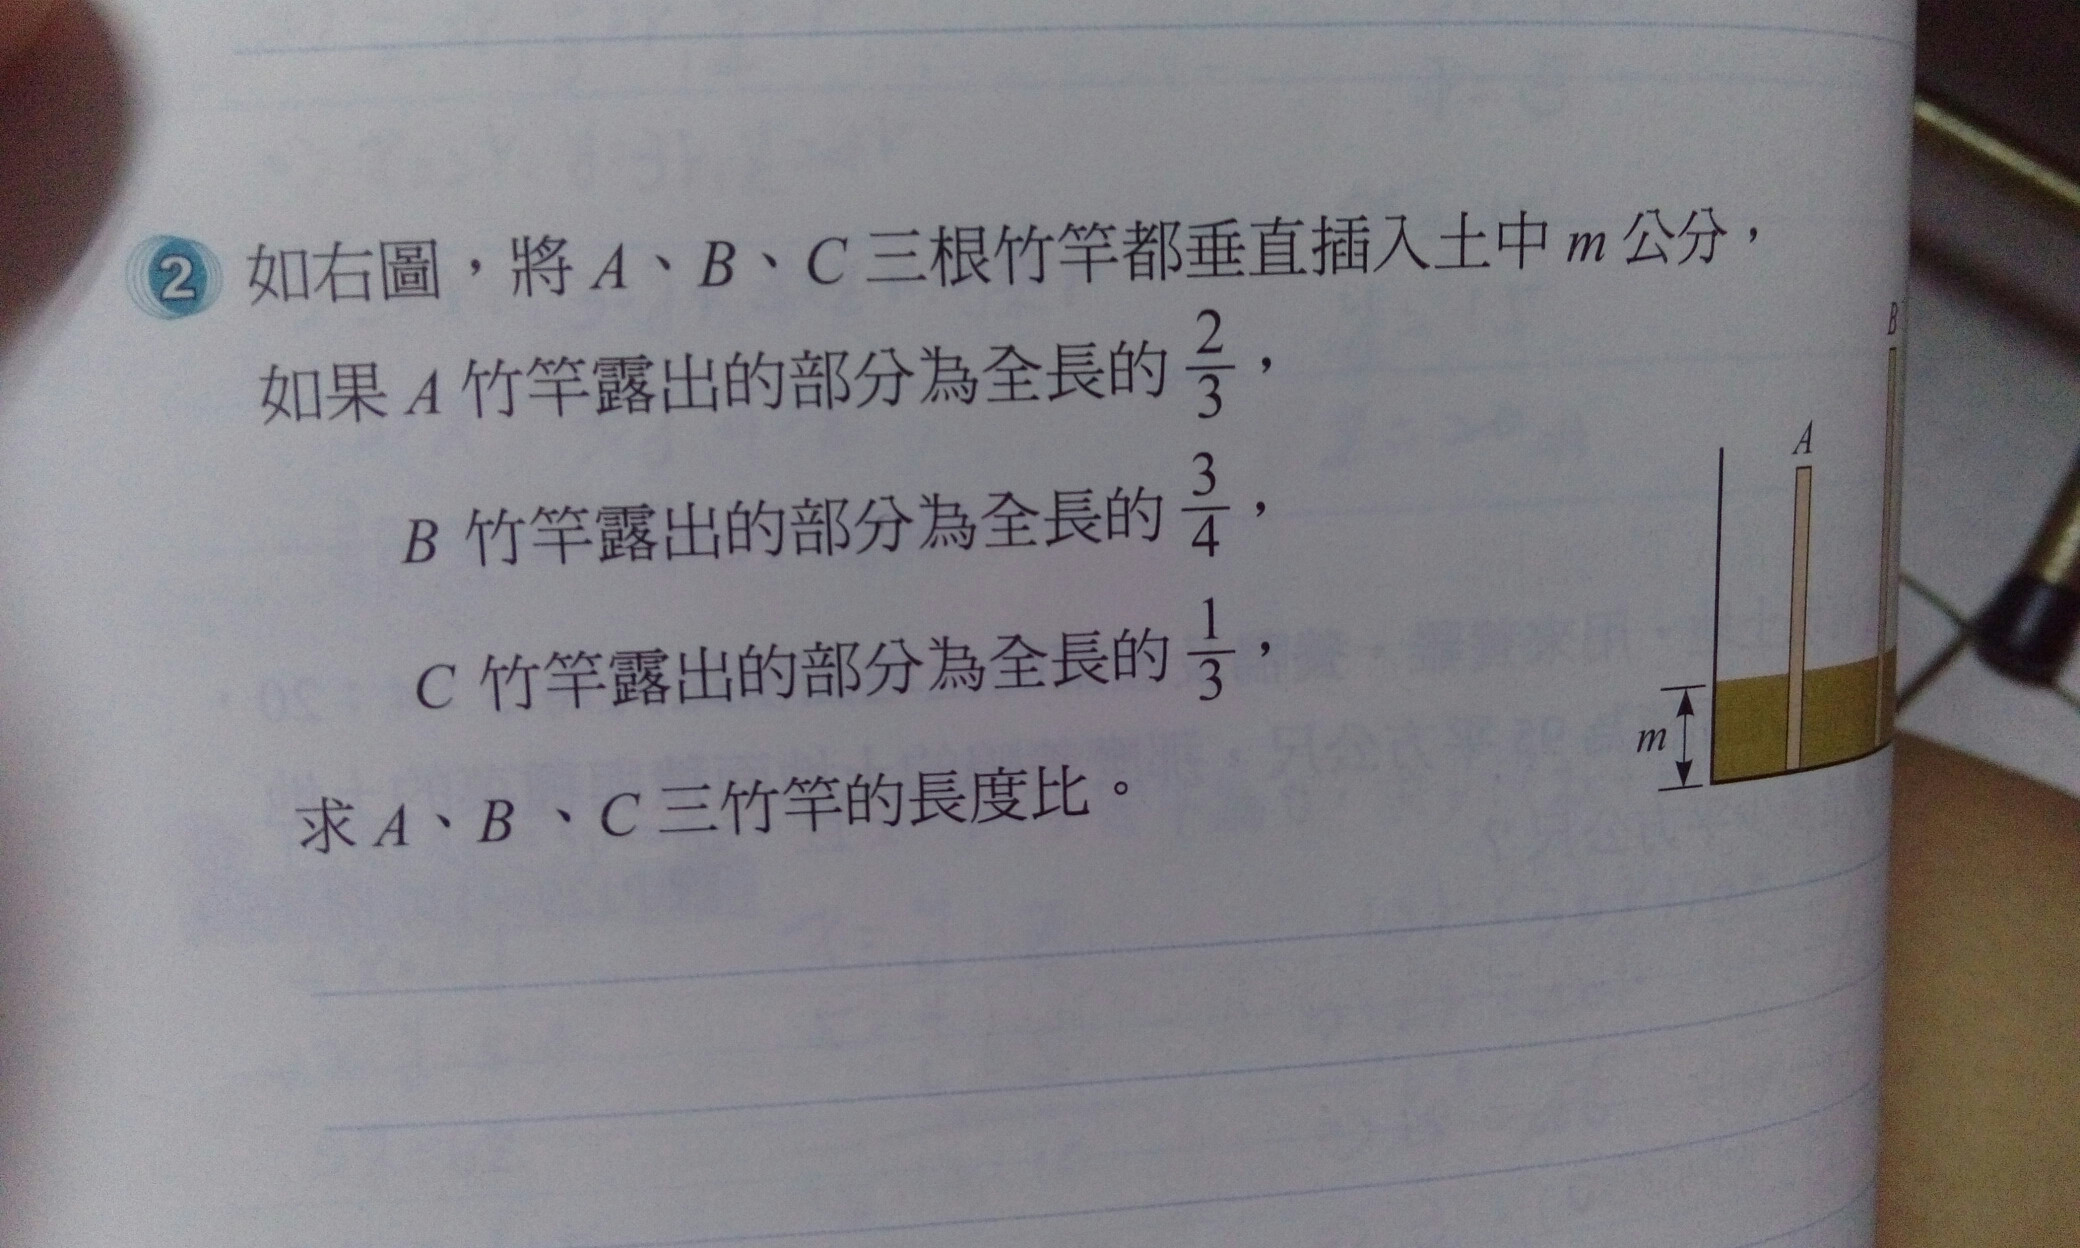 2 如右圖，將 A、B、C 三根竹竿都垂直插入土中 m 公分，
如果 A 竹竿露出的部分為全長的 2/3，
B 竹竿露出的部分為全長的 3/4，
C 竹竿露出的部分為全長的 1/3，
求 A、B、C 三竹竿的長度比。
B
A
m